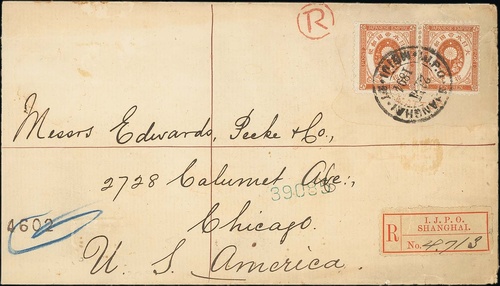 R
JAPANESE EMPIRE JAPANESE EMPIRE
I.J.P.O. SHANGHAI
Messrs Edwards, Peeke & Co.:
2728 Calumet Ave:,
39095
Chicago.
4602
U. S. America.
R
I. J. P. O.
SHANGHAI.
No. 4713